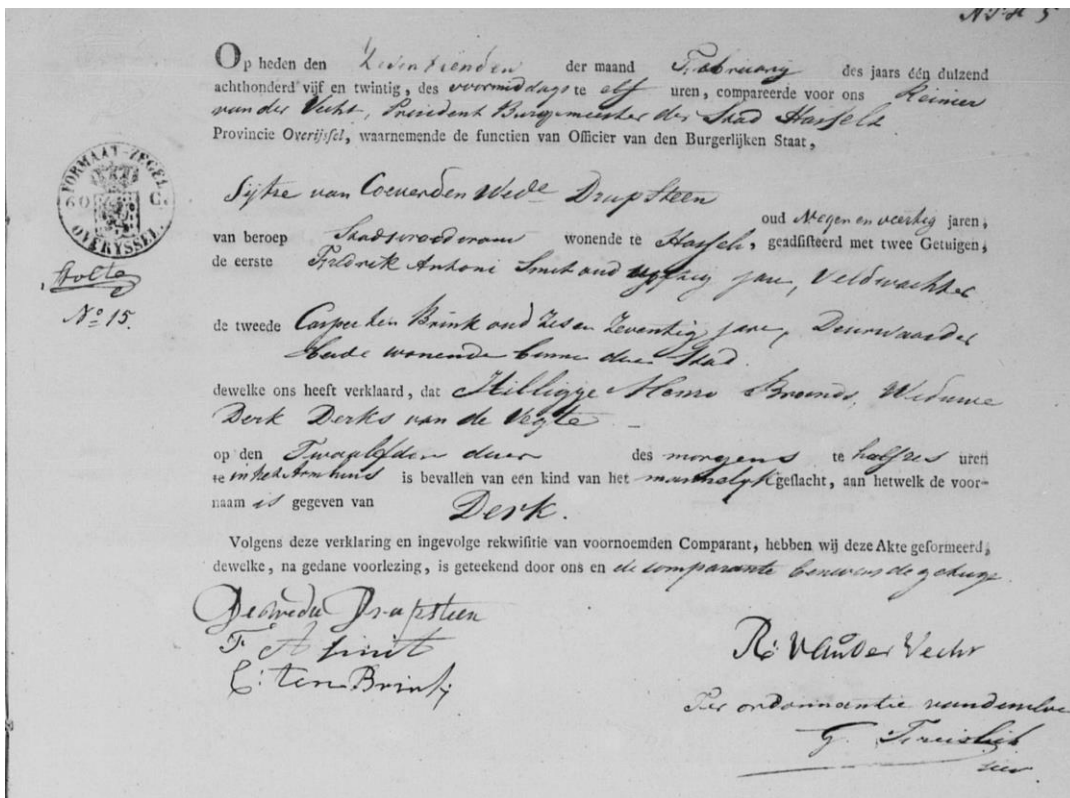 N 5
Op heden den Zeventienden der maand February des jaars één duizend
achthonderd vijf en twintig, des voormiddags te elf uren, compareerde voor ons Reinier
van der Vecht, President Burgemeester der Stad Hasselt
Provincie Overijssel, waarnemende de functien van Officier van den Burgerlijken Staat,
FORMAAT-ZEGEL
60 C.
OVERYSSEL.
Holte
No 15.
Sijtse van Coeverden Wede Drupsteen
oud Negen en veertig jaren,
van beroep Stadsvroedvrouw wonende te Hasselt, geadsisteerd met twee Getuigen,
de eerste Fredrik Antoni Smit oud vyftig jare, Veldwachter
de tweede Casper ten Brink oud Zes en Zeventig jare, Deurwaarder
beide wonende binnen deze Stad.
dewelke ons heeft verklaard, dat Hilligje Berends, Weduwe
Derk Derks van de Vegte
op den Twaalfden dezer des morgens te half zes uren
te in het Armhuis is bevallen van een kind van het mannelyk geslacht, aan hetwelk de voor-
naam is gegeven van Derk.
Volgens deze verklaring en ingevolge rekwisitie van voornoemden Comparant, hebben wij deze Akte geformeerd,
dewelke, na gedane voorlezing, is geteekend door ons en de comparante benevens de getuige.
De wedu Drupsteen
F A Smit
C: ten Brink
R: van der Vecht
Ter ordonnantie van dezelve
G.